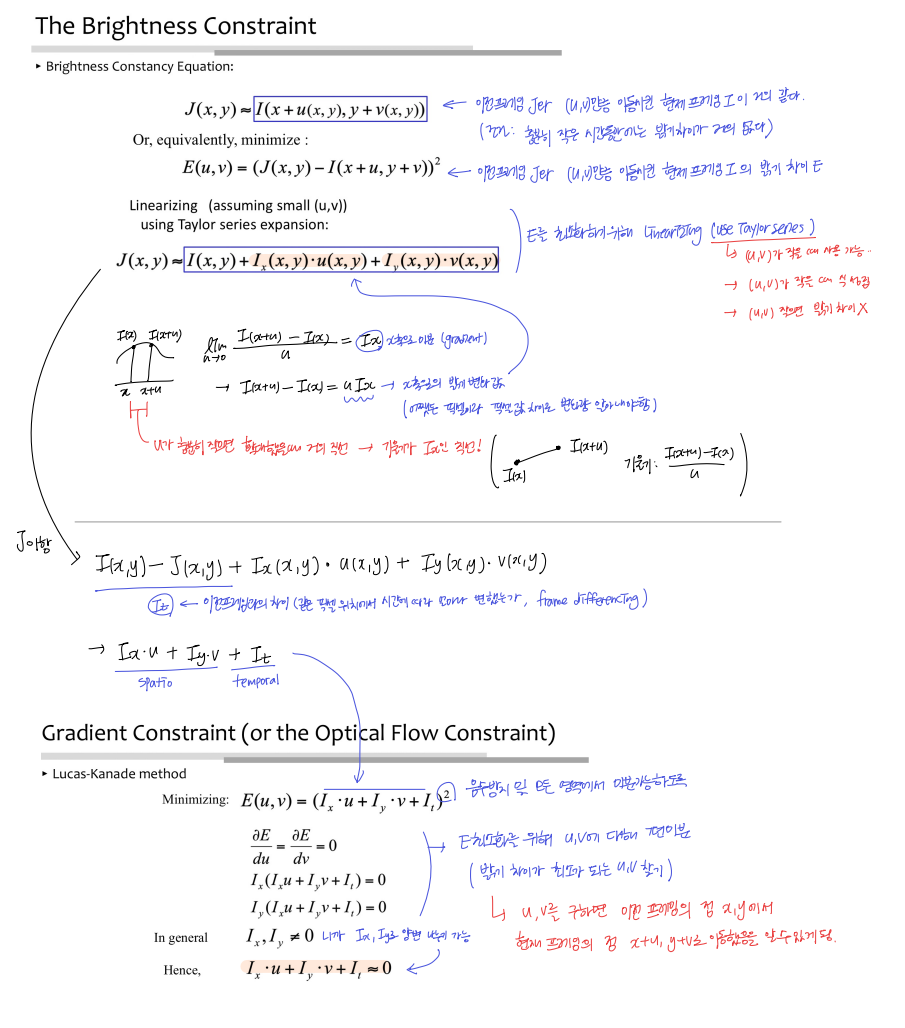 The Brightness Constraint
▸ Brightness Constancy Equation:
J(x, y) ≈ I(x + u(x, y), y + v(x, y)) ← 이전프레임 J와 (u,v)만큼 이동시킨 현재 프레임 I이 거의 같다.
Or, equivalently, minimize : (전제: 충분히 작은 시간동안에는 밝기차이가 거의 없다)
E(u, v) = (J(x, y) − I(x + u, y + v))² ← 이전프레임 J와 (u,v)만큼 이동시킨 현재 프레임 I의 밝기 차이 E
Linearizing (assuming small (u,v))
using Taylor series expansion: E를 최소화하기위해 Linearizing (use Taylor series)
↳ (u,v)가 작을 때 사용 가능..
J(x, y) ≈ I(x, y) + Iₓ(x, y)·u(x, y) + I_y(x, y)·v(x, y)
→ (u,v)가 작은 때 식 성립
→ (u,v) 작으면 밝기 차이 X
I(x) I(x+u)
lim u→0 (I(x+u) − I(x)) / u = Ix x축으로 미분 (gradient)
x x+u
→ I(x+u) − I(x) = u Ix → x축으로의 밝기 변화값
(어쨌든 픽셀이라 픽셀 값 차이로 변화량 알아내야함)
u가 충분히 작으면 확대했을때 거의 직선 → 기울기가 Ix인 직선!
I(x) I(x+u) 기울기: (I(x+u)−I(x)) / u
J이항
I(x,y) − J(x,y) + Ix(x,y)·u(x,y) + Iy(x,y)·v(x,y)
It ← 이전프레임과의 차이 (같은 픽셀 위치에서 시간에 따라 얼마나 변했는가, frame differencing)
→ Ix·u + Iy·v + It
spatio temporal
Gradient Constraint (or the Optical Flow Constraint)
▸ Lucas-Kanade method
Minimizing: E(u, v) = (Iₓ·u + I_y·v + I_t)² 음수방지 및 모든 영역에서 미분가능하도록
∂E/du = ∂E/dv = 0 → E최소화를 위해 u,v에 대해 편미분
Iₓ(Iₓu + I_yv + I_t) = 0 (밝기 차이가 최소가 되는 u,v 찾기)
I_y(Iₓu + I_yv + I_t) = 0 ↳ u,v를 구하면 이전 프레임의 점 x,y에서
In general Iₓ, I_y ≠ 0 니까 Ix, Iy로 양변 나누기 가능 현재 프레임의 점 x+u, y+v로 이동했음을 알 수 있게 됨.
Hence, Iₓ·u + I_y·v + I_t ≈ 0